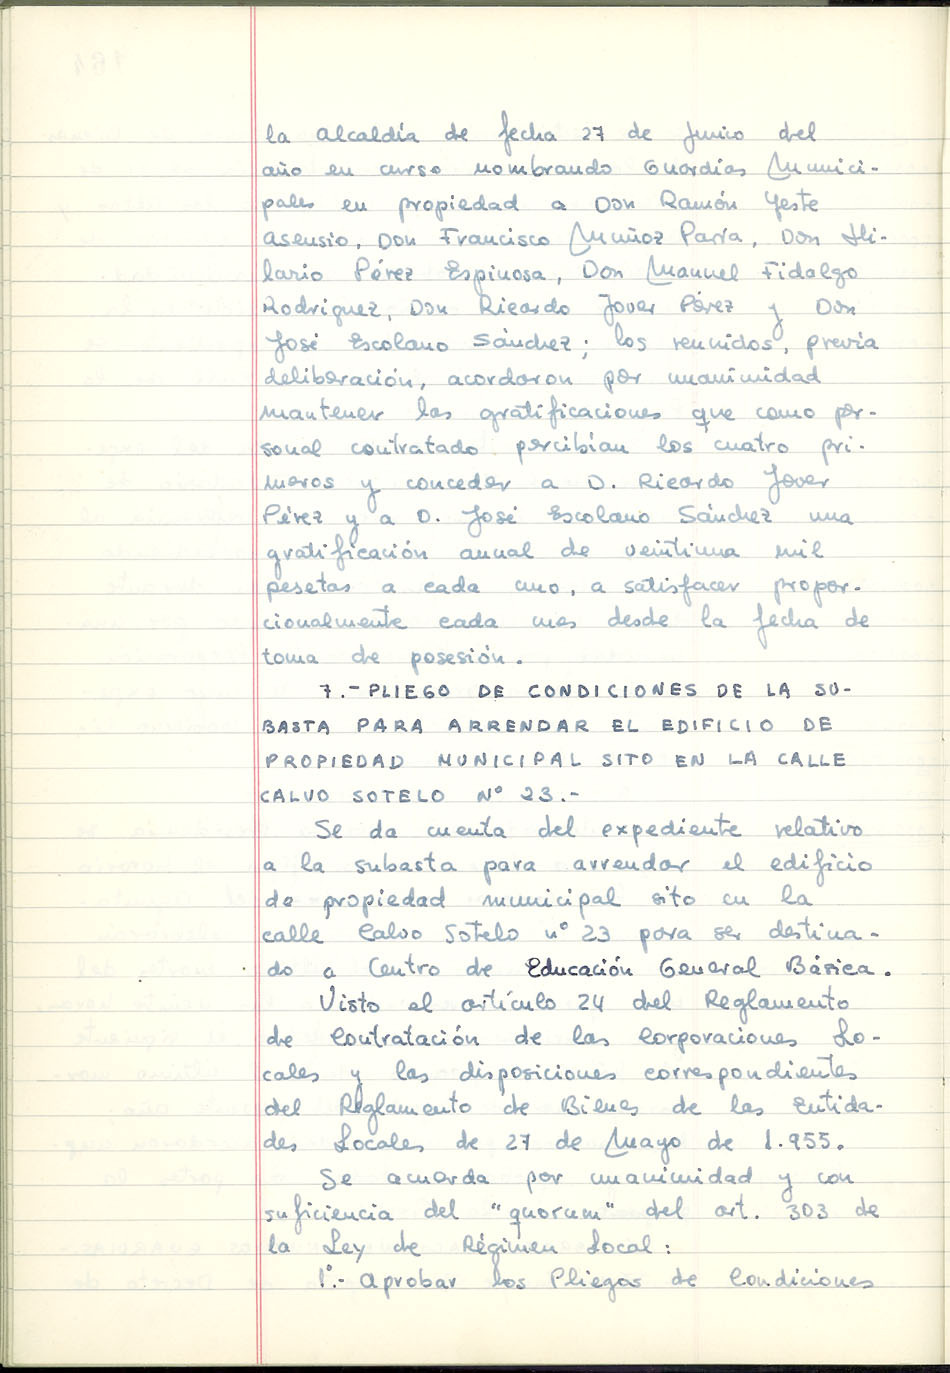 la Alcaldía de fecha 27 de Junio del
año en curso nombrando Guardias Munici-
pales en propiedad a Don Ramón Yeste
Asensio, Don Francisco Muñoz Parra, Don Hi-
lario Pérez Espinosa, Don Manuel Fidalgo
Rodriguez, Don Ricardo Jover Pérez y Don
José Escolano Sánchez; los reunidos, previa
deliberación, acordaron por unanimidad
mantener las gratificaciones que como per-
sonal contratado percibían los cuatro pri-
meros y conceder a D. Ricardo Jover
Pérez y a D. José Escolano Sánchez una
gratificación anual de veintiuna mil
pesetas a cada uno, a satisfacer propor-
cionalmente cada mes desde la fecha de
toma de posesión.
7.- PLIEGO DE CONDICIONES DE LA SU-
BASTA PARA ARRENDAR EL EDIFICIO DE
PROPIEDAD MUNICIPAL SITO EN LA CALLE
CALVO SOTELO Nº 23.-
Se da cuenta del expediente relativo
a la subasta para arrendar el edificio
de propiedad municipal sito en la
calle Calvo Sotelo nº 23 para ser destina-
do a Centro de Educación General Básica.
Visto el artículo 24 del Reglamento
de Contratación de las Corporaciones Lo-
cales y las disposiciones correspondientes
del Reglamento de Bienes de las Entida-
des Locales de 27 de Mayo de 1.955.
Se acuerda por unanimidad y con
suficiencia del "quorum" del art. 303 de
la Ley de Régimen Local:
1º.- Aprobar los Pliegos de Condiciones